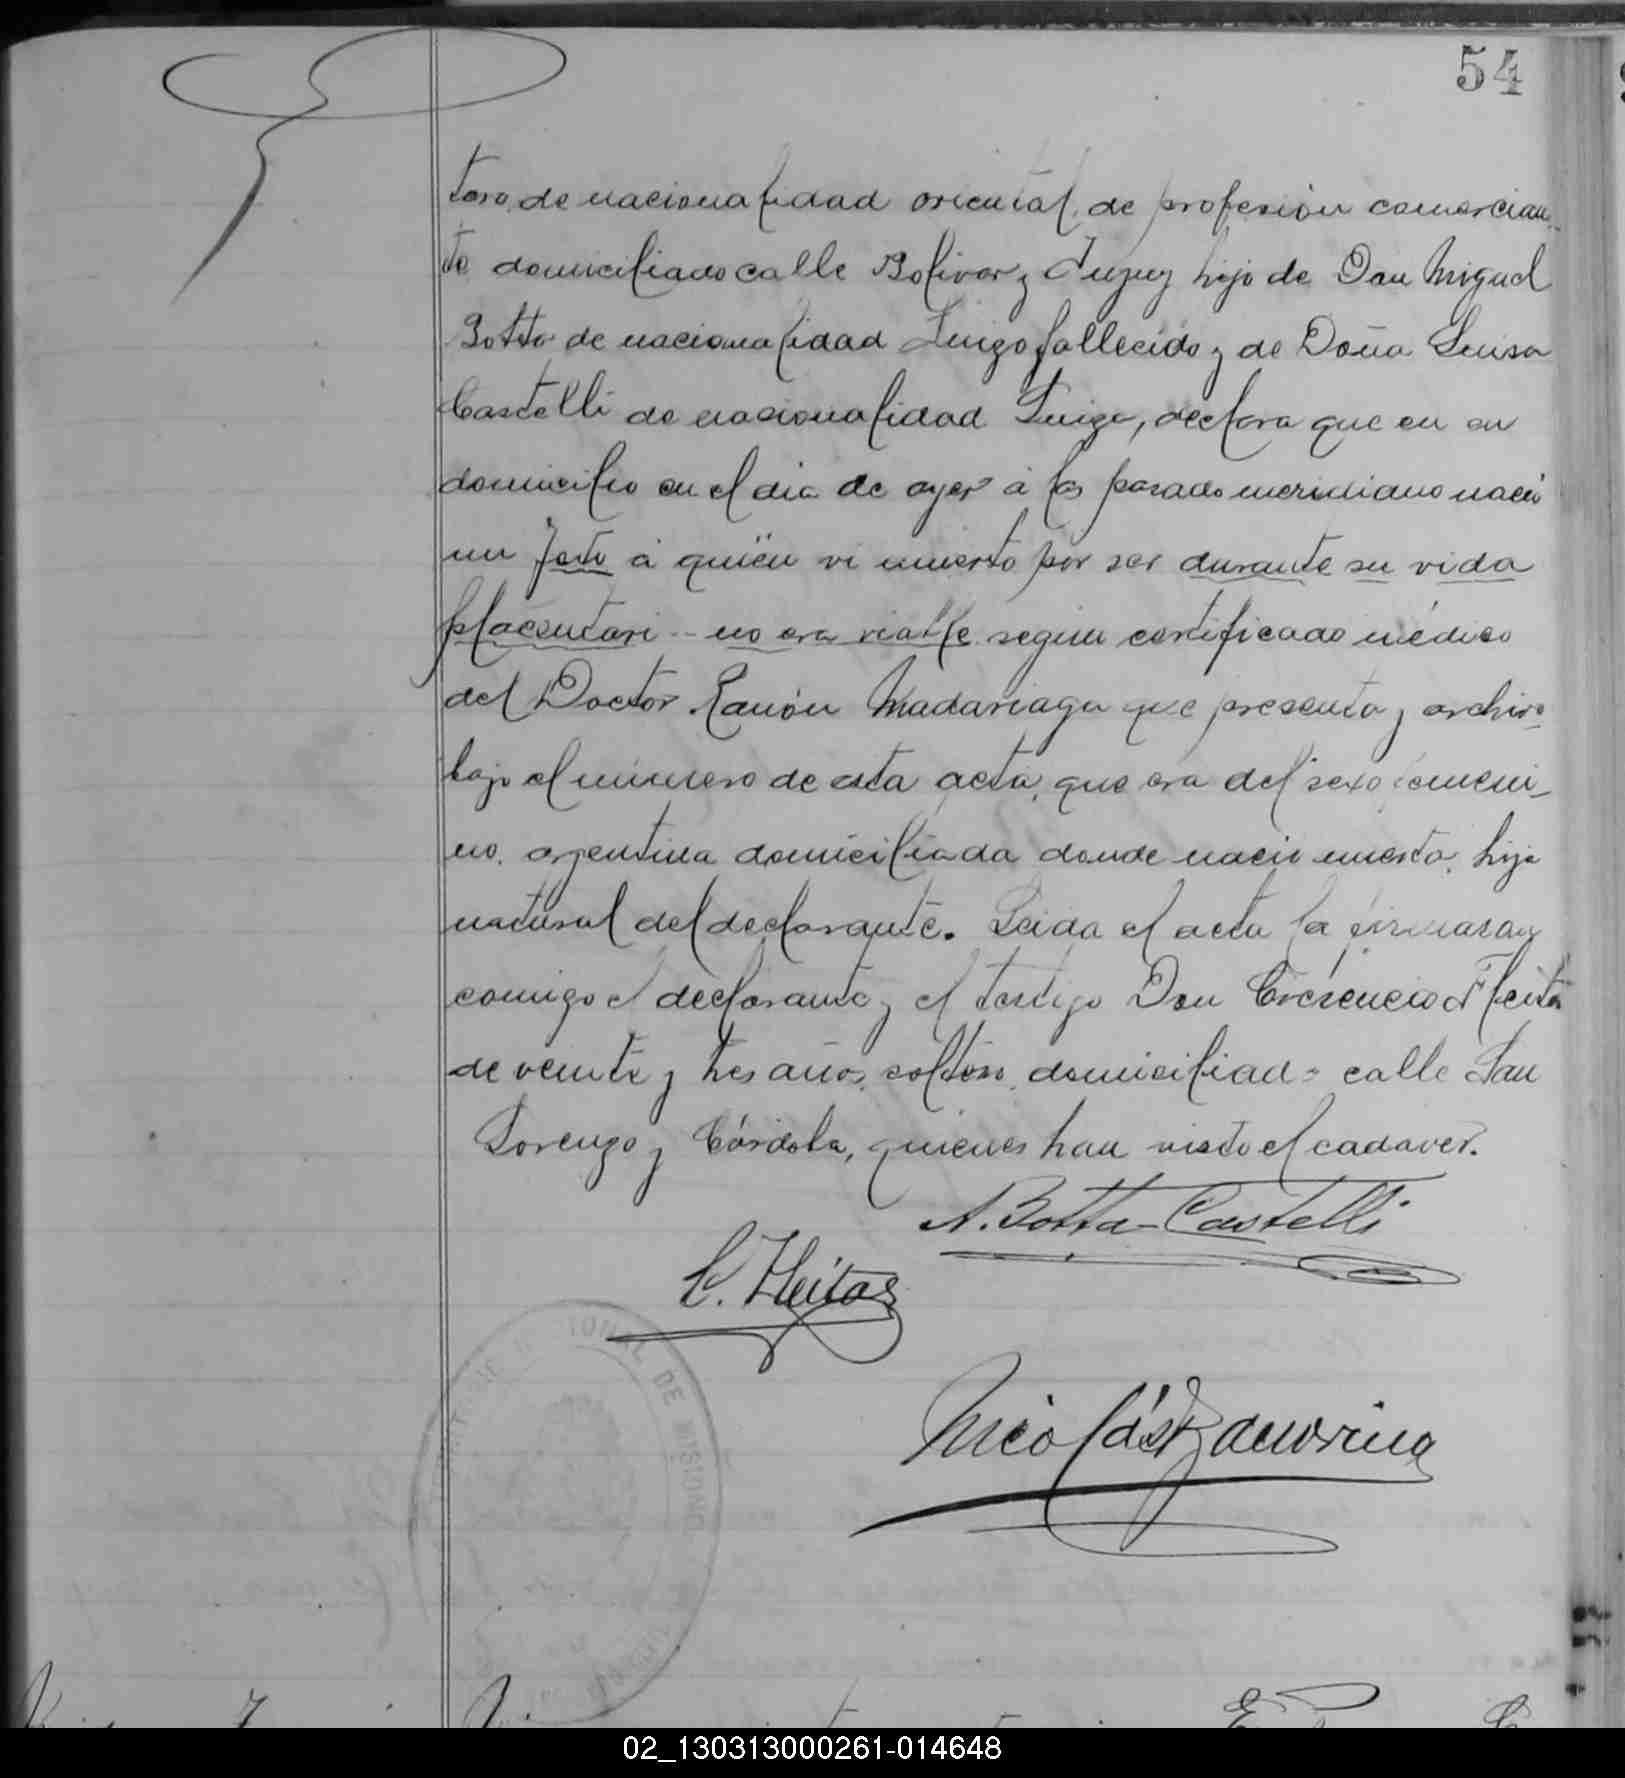 54
tero, de nacionalidad oriental, de profesión comercian-
te domiciliado calle Bolivar y Jujuy hijo de Don Miguel
Botta de nacionalidad Suizo fallecido y de Doña Luisa
Castelli de nacionalidad Suiza, declara que en su
domicilio en el dia de ayer á las pasado meridiano nació
un feto á quien vi muerto por ser durante su vida
placentari - no era viable segun certificado médico
del Doctor Ramón Madariaga que presenta y archivo
bajo el número de esta acta, que era del sexo femeni-
no, argentina domiciliada donde nació muerta, hija
natural del declarante. Leida el acta la firmaron
comigo el declarante y el testigo Don Crescencio Fleitas
de veinte y tres años, soltero, domiciliado calle San
Lorenzo y Córdoba, quienes han visto el cadaver.
A. Botta-Castelli
C. Fleitas
Nicolás
DE MISIONES
02_130313000261-014648